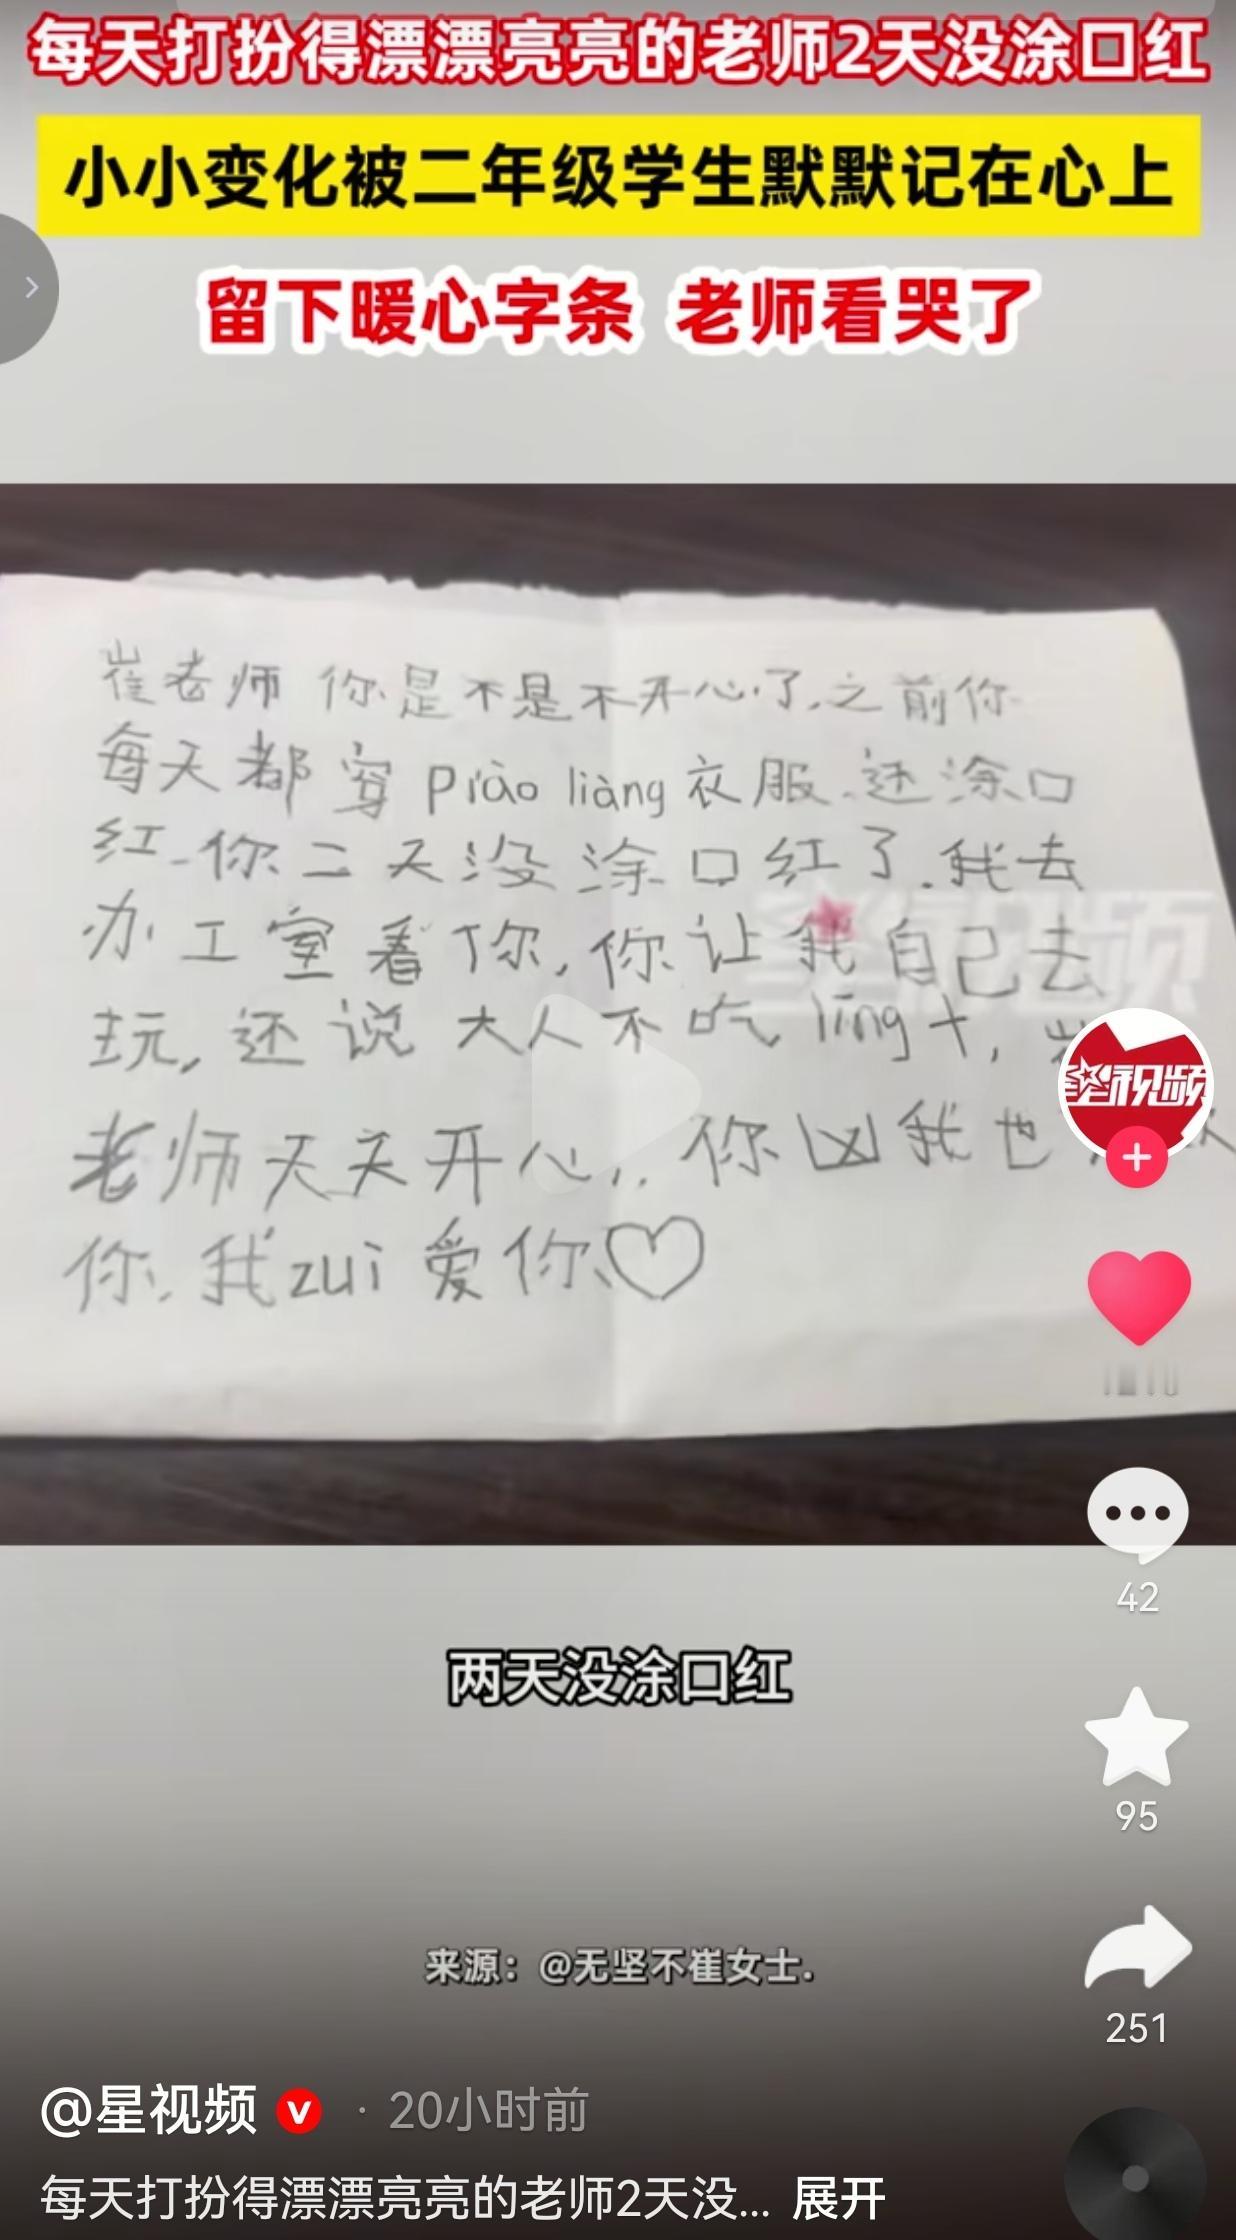 每天打扮得漂漂亮亮的老师2天没涂口红
小小变化被二年级学生默默记在心上
留下暖心字条 老师看哭了
崔老师 你是不是不开心了.之前你
每天都穿 piào liàng 衣服.还涂口
红.你二天没涂口红了.我去
办工室看你,你让我自己去
玩,还说大人不吃 líng 十,
老师天天开心,.你凶我也
你.我 zuì 爱你♡
星视频
星视频
42
两天没涂口红
95
来源：@无坚不崔女士.
251
@星视频 · 20小时前
每天打扮得漂漂亮亮的老师2天没... 展开